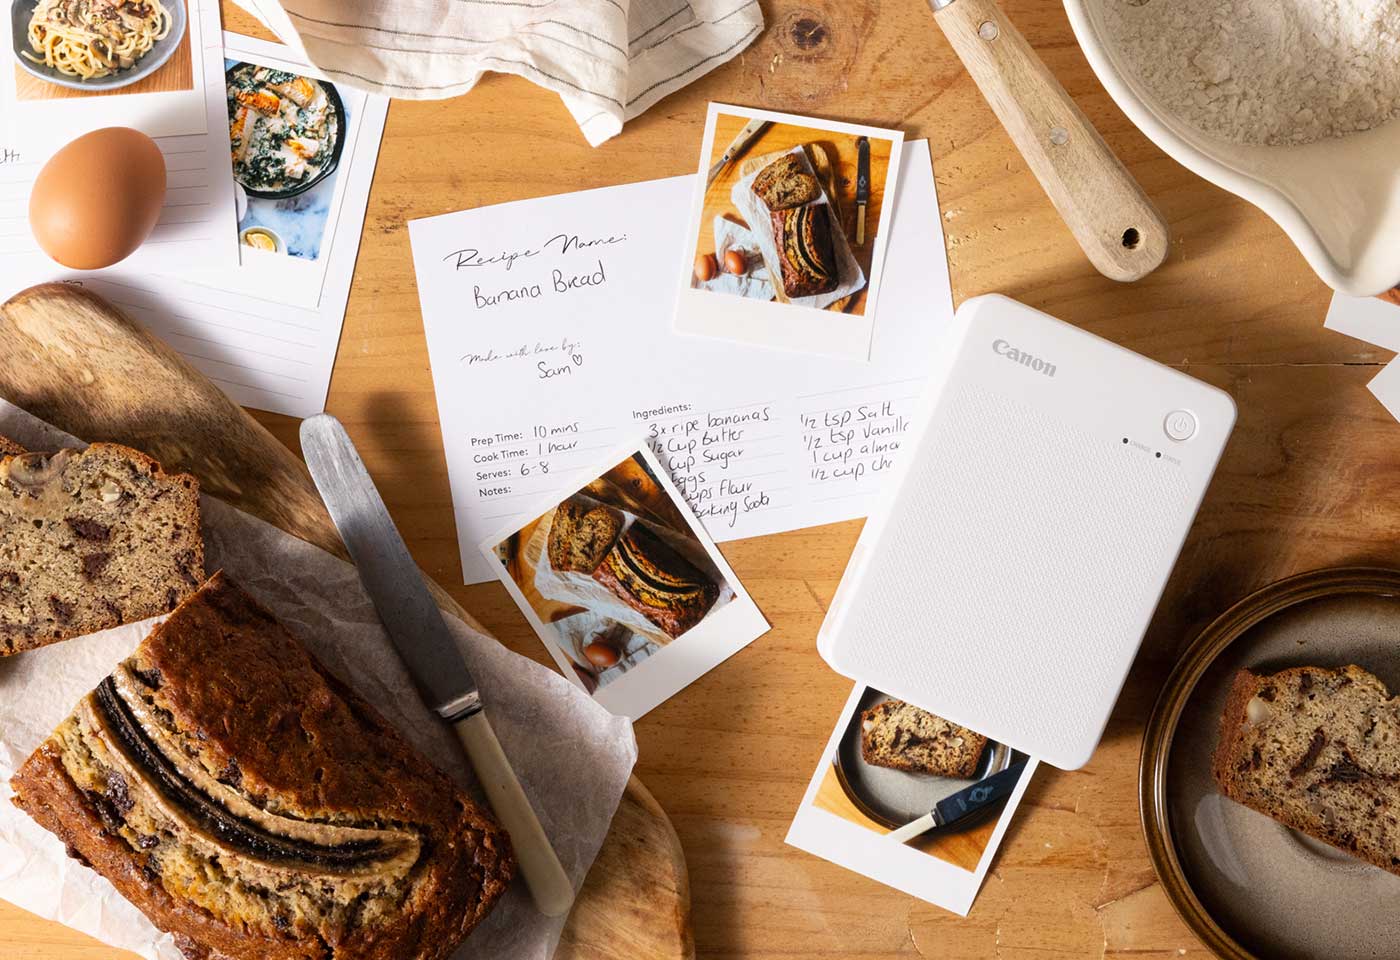 Recipe Name:
Banana Bread
Made with love by:
Sam♡
Prep Time: 10 mins
Cook Time: 1 hour
Serves: 6-8
Notes:
Ingredients:
3x ripe bananas
1/2 Cup butter
Cup Sugar
Eggs
Cups flour
Baking Soda
1/2 tsp Salt
1/2 tsp Vanilla
1 cup
1/2 cup
Canon
CHARGE
STATUS